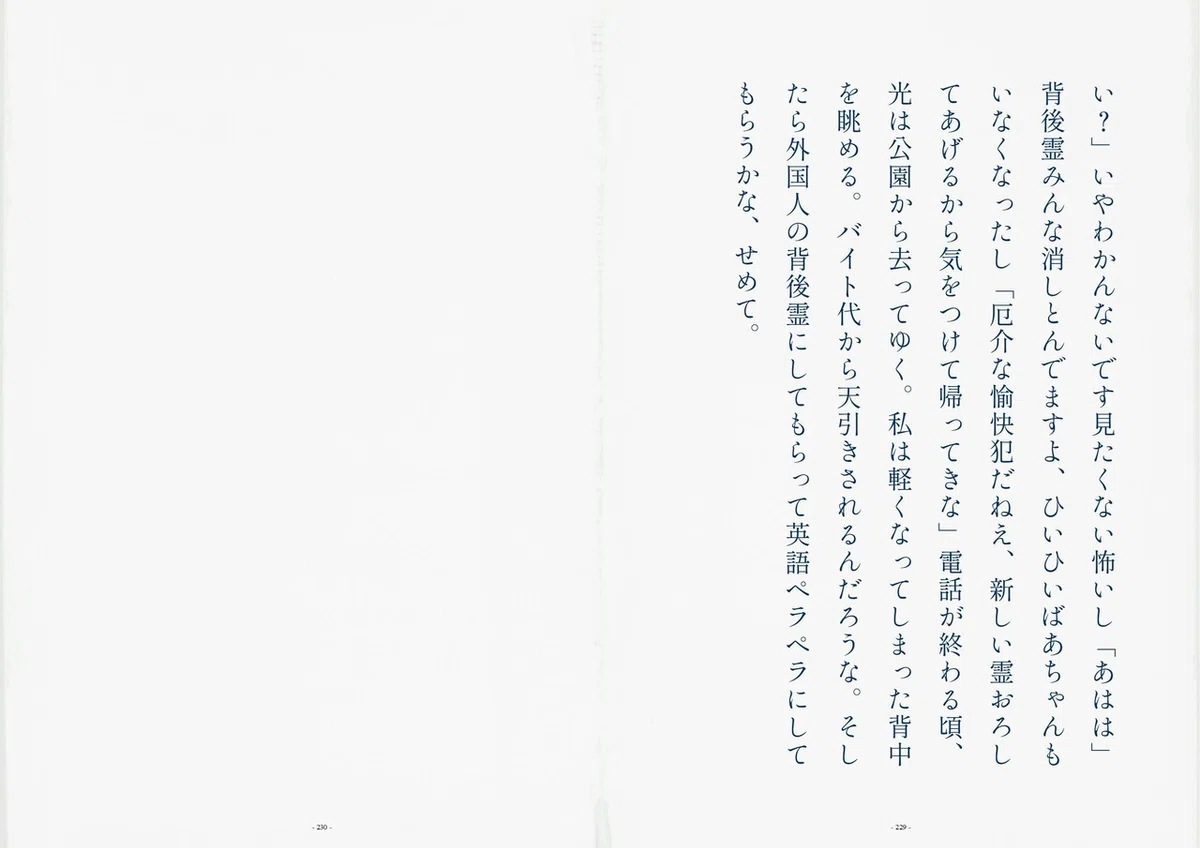 い？」いやわかんないです見たくない怖いし「あはは」
背後霊みんな消しとんでますよ、ひいひいばあちゃんも
いなくなったし「厄介な愉快犯だねえ、新しい霊おろし
てあげるから気をつけて帰ってきな」電話が終わる頃、
光は公園から去ってゆく。私は軽くなってしまった背中
を眺める。バイト代から天引きされるんだろうな。そし
たら外国人の背後霊にしてもらって英語ペラペラにして
もらうかな、せめて。
- 229 -
- 230 -